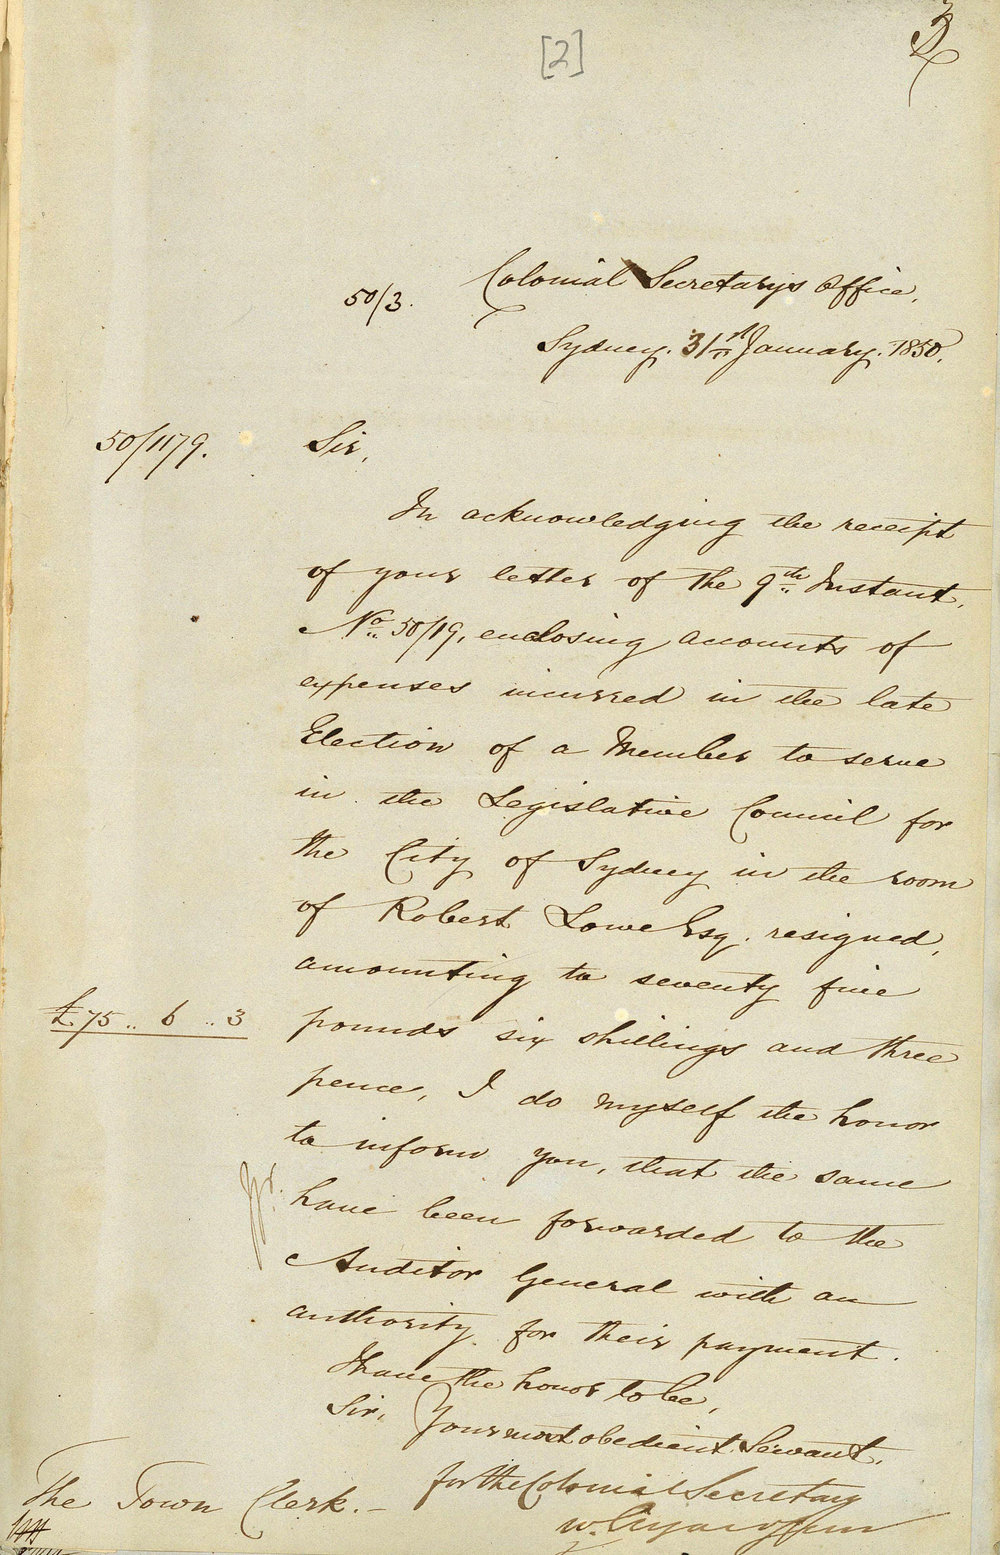 [2]
3
50/3.
Colonial Secretary's Office,
Sydney. 31st January. 1850.
50/1179.
Sir,
In acknowledging the receipt
of your letter of the 9th Instant,
No. 50/19, enclosing accounts of
expenses incurred in the late
Election of a Member to serve
in the Legislative Council for
the City of Sydney in the room
of Robert Lowe Esq. resigned,
amounting to seventy five
£75 .. 6 .. 3
pounds six shillings and three
pence, I do myself the honor
to inform you, that the same
have been forwarded to the
Auditor General with an
authority for their payment.
I have the honor to be,
Sir,
Your most obedient Servant,
for the Colonial Secretary
W.
The Town Clerk. -